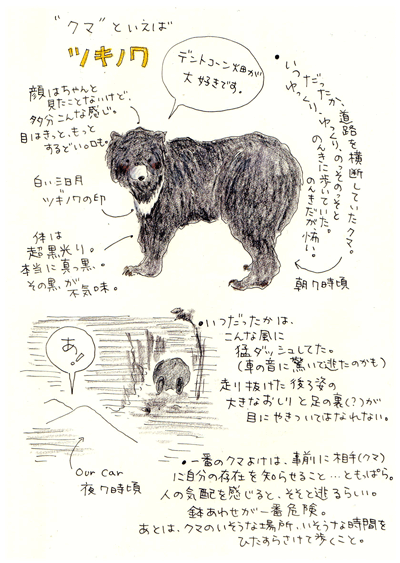 "クマ"といえば
ツキノワ
デントコーン畑が
大好きです。
顔はちゃんと
見たことないけど、
多分こんな感じ。
目はきっと、もっと
するどいのも。
白い三日月
ツキノワの印
体は
超黒光り。
本当に真っ黒。
その黒が
不気味。
・いつだったか、道路を横断していたクマ。
ゆっくり、ゆっくり、のっそのっそと
のんきに歩いていた。
のんきだが怖い。
朝7時頃
・いつだったかは、
こんな風に
猛ダッシュしてた。
(車の音に驚いて逃たのかも)
走り抜けた後ろ姿の
大きなおしりと足の裏(?)が
目にやきついてはなれない。
あ!
Our car
夜7時頃
・一番のクマよけは、事前に相手(クマ)
に自分の存在を知らせること…ともっぱら。
人の気配を感じると、そそと逃るらしい。
鉢あわせが一番危険。
あとは、クマのいそうな場所、いそうな時間を
ひたすらさけて歩くこと。